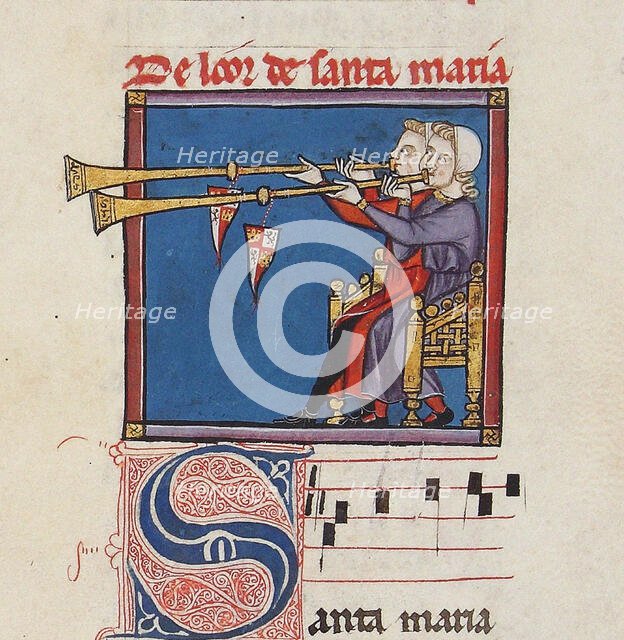 De loor de santa maria
Heritage Heritage
Heritage Heritage
Heritage Heritage
Santa maria